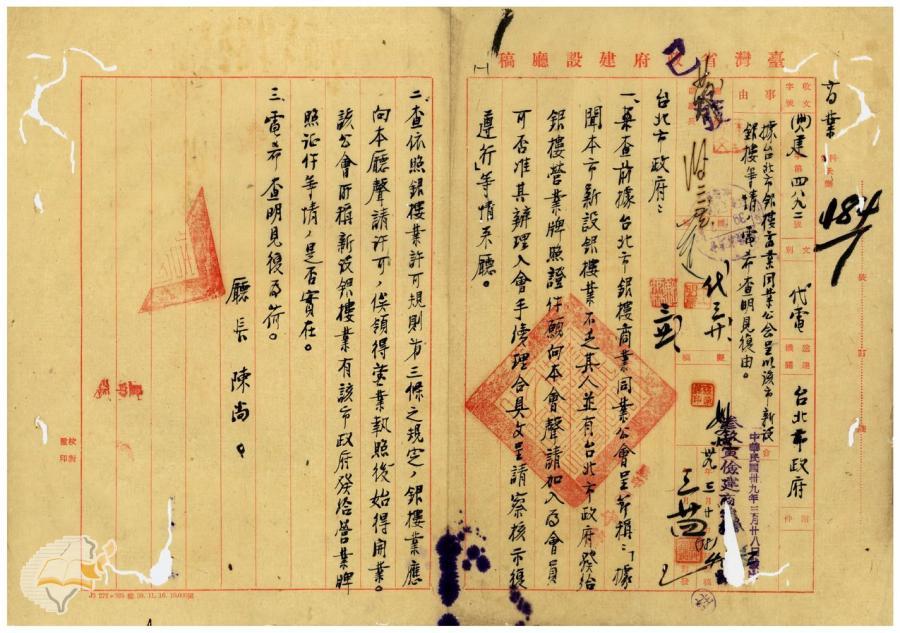 臺灣省政府建設廳稿
商業
484
收文字號
興建
第四八九二號
文別
代電
送達機關
台北市政府
附件
事由
據台北市銀樓商業同業公會呈以該市新設
銀樓等請電希查明見復由。
中華民國卅九年三月廿八
台北市政府：
一、案查前據台北市銀樓商業同業公會呈畧稱：「據
聞本市新設銀樓業不乏其人並有台北市政府發給
銀樓營業牌照證件願向本會聲請加入為會員
可否准其辦理入會手續理合具文呈請察核示復
遵行」等情來廳。
二、查依照銀樓業許可規則第三條之規定，銀樓業應
向本廳聲請許可，俟領得營業執照後始得開業。
該公會所稱新設銀樓業有該市政府發給營業牌
照証件等情，是否實在。
三、電希查明見復為荷。
廳長 陳尚
校對
監印